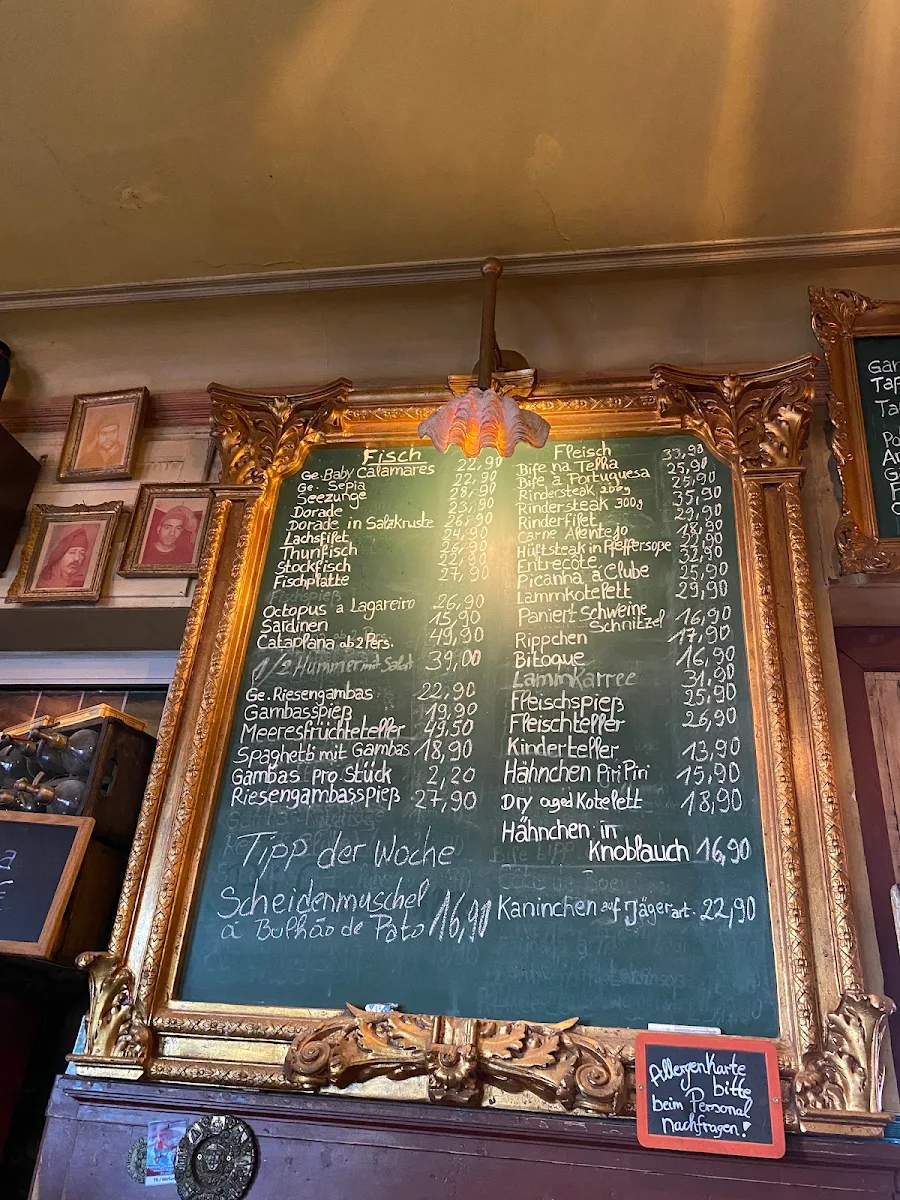 Fisch
Ge. Baby Calamares 22,90
Ge. Sepia 22,90
Seezunge 28,90
Dorade 23,90
Dorade in Salzkruste 26,90
Lachsfilet 24,90
Thunfisch
Stockfisch
Fischplatte 27,90
Octopus a Lagareiro 26,90
Sardinen 15,90
Cataplana ab 2 Pers. 49,90
1/2 Hummer mit Salat 39,00
Ge. Riesengambas 22,90
Gambasspieß 19,90
Meeresfrüchteteller 49,50
Spaghetti mit Gambas 18,90
Gambas pro Stück 2,20
Riesengambasspieß 27,90
Tipp der Woche
Scheidenmuschel
á Bulhão de Pato 16,90
Fleisch
Bife na Telha 33,90
Bife á Portuguesa 25,90
Rindersteak 200g 25,90
Rindersteak 300g 35,90
Rinderfilet 29,90
Carne Alentejo 18,90
Hüftsteak in Pfeffersoße
Entrecote 32,90
Picanha á Clube 25,90
Lammkotelett 29,90
Paniert Schweine
Schnitzel 16,90
Rippchen 17,90
Bitoque 16,90
Lammkarree 31,90
Fleischspieß 25,90
Fleischteller 26,90
Kinderteller 13,90
Hähnchen Piri Piri 15,90
Dry aged Kotelett 18,90
Hähnchen in
Knoblauch 16,90
Kaninchen auf Jägerart. 22,90
Allergenkarte
bitte
beim Personal
nachfragen!